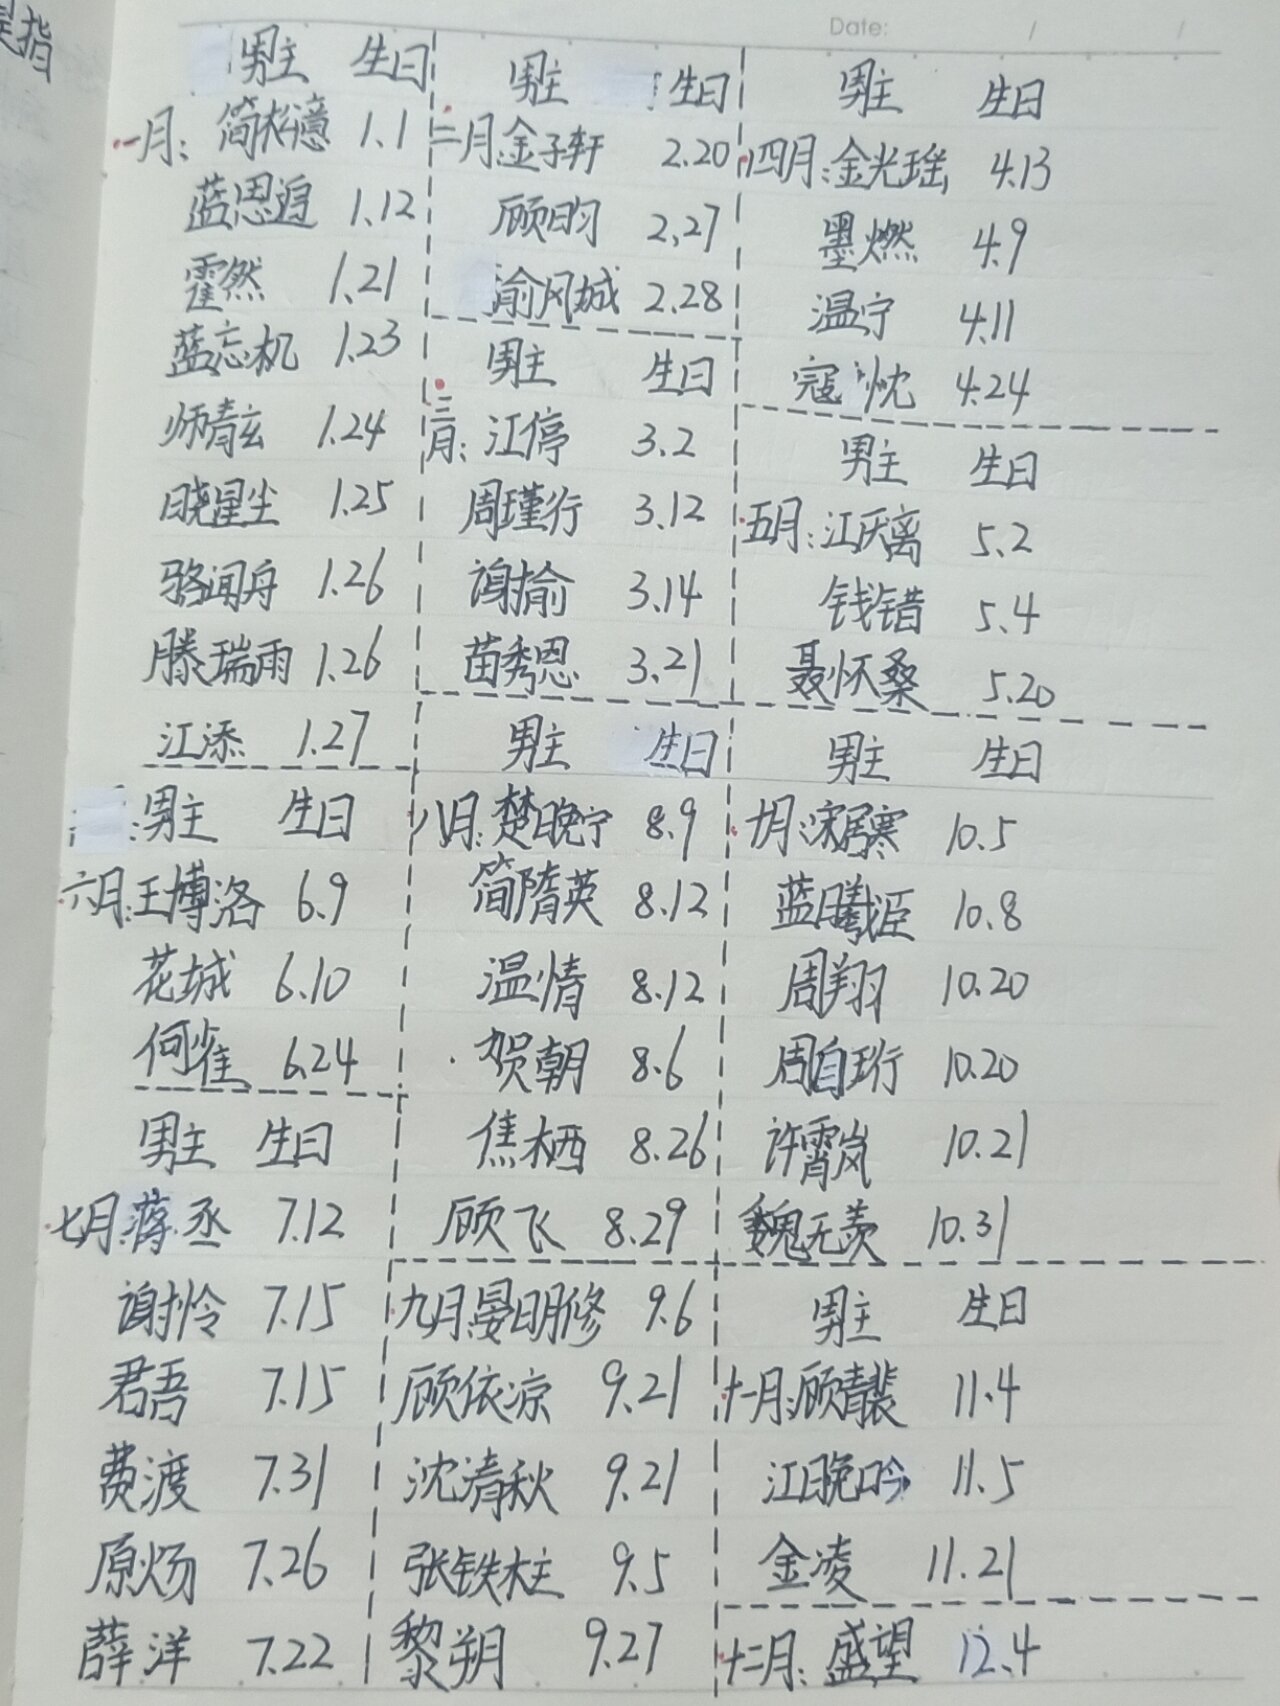 Date: / /
男主 生日
一月: 简松意 1.1
蓝思追 1.12
霍然 1.21
蓝忘机 1.23
师青玄 1.24
晓星尘 1.25
骆闻舟 1.26
滕瑞雨 1.26
江添 1.27
男主 生日
二月:金子轩 2.20
顾昀 2.27
渝风城 2.28
男主 生日
三月: 江停 3.2
周瑾行 3.12
谢揄 3.14
苗秀恩 3.21
男主 生日
四月:金光瑶 4.13
墨燃 4.9
温宁 4.11
寇忱 4.24
男主 生日
五月:江厌离 5.2
钱错 5.4
聂怀桑 5.20
男主 生日
六月:王博洛 6.9
花城 6.10
何雀 6.24
男主 生日
七月:蒋丞 7.12
谢怜 7.15
君吾 7.15
费渡 7.31
原炀 7.26
薛洋 7.22
男主 生日
八月:楚晚宁 8.9
简隋英 8.12
温情 8.12
贺朝 8.6
焦栖 8.26
顾飞 8.29
九月晏明修 9.6
顾依凉 9.21
沈清秋 9.21
张铁柱 9.5
黎朔 9.27
男主 生日
十月:宋居寒 10.5
蓝曦臣 10.8
周翔 10.20
周自珩 10.20
许霄岚 10.21
魏无羡 10.31
男主 生日
十一月:顾青裴 11.4
江晚吟 11.5
金凌 11.21
十二月: 盛望 12.4